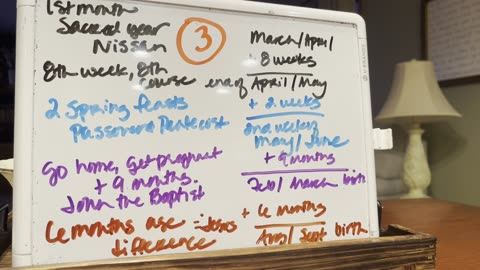 1st month
Sacred year
Nissan
3
March/April
+ 8 weeks
8th week, 8th
course
end of April/May
2 Spring feasts
Passover & Pentecost
+ 2 weeks
2nd week of
May/June
Go home, get pregnant
+ 9 months.
John the Baptist
+ 9 months
Feb/March birth
6 months age
difference
- Jesus
+ 6 months
Aug/Sept birth